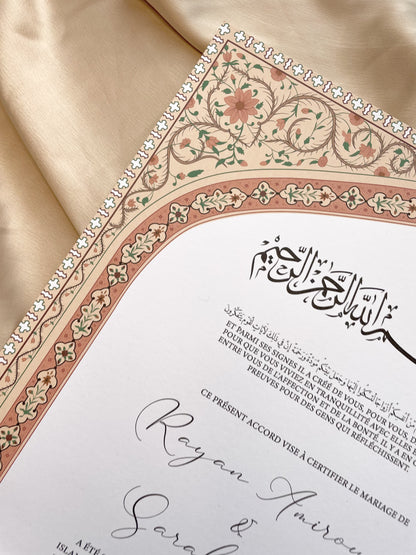 بسم الله الرحمن الرحيم
ET PARMI SES SIGNES IL A CRÉÉ DE VOUS, POUR VOUS,
POUR QUE VOUS VIVIEZ EN TRANQUILLITÉ AVEC ELLES E
ENTRE VOUS DE L'AFFECTION ET DE LA BONTÉ. IL Y A EN
PREUVES POUR DES GENS QUI RÉFLÉCHISSENT.
CE PRÉSENT ACCORD VISE À CERTIFIER LE MARIAGE DE
Rayan Amirou
&
Sarah
A ÉTÉ
ISLA